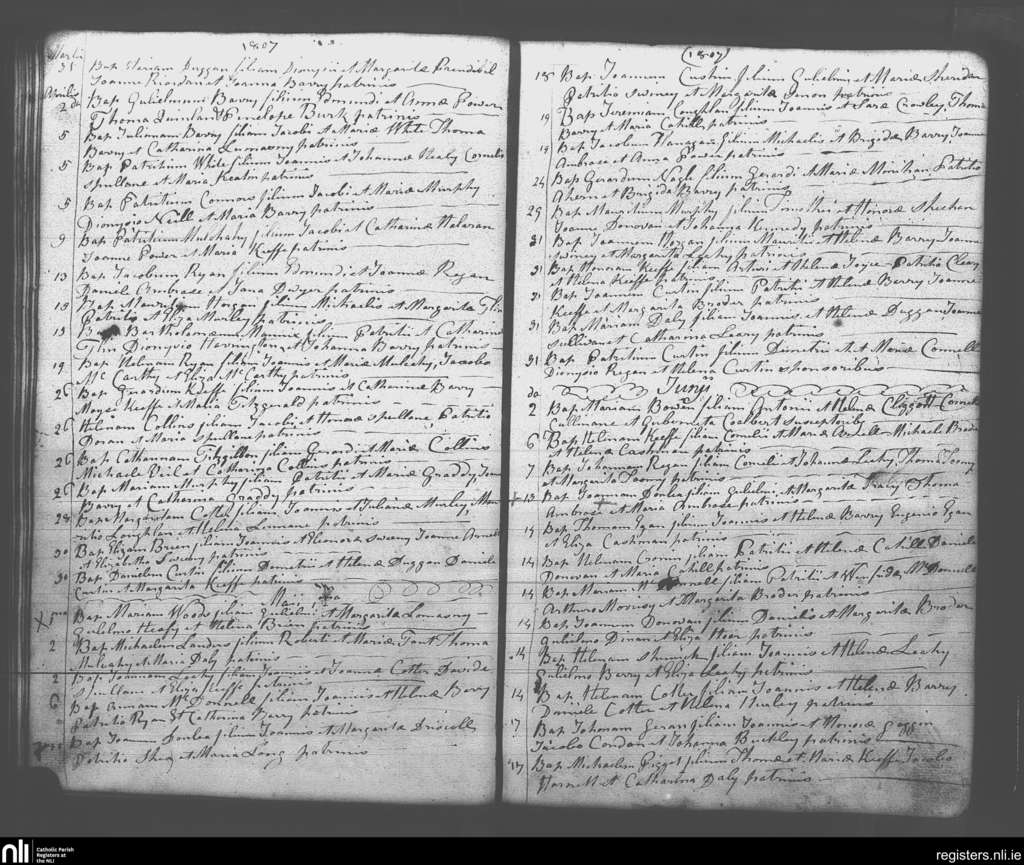 1807
Martii
31 Bap Mariam Duggan filiam Dionysii et Margaritæ Prendibel
Joanne Riordan et Joanna Barry patrinis
Aprilis
2 da Bap Gulielmum Barry filium Edmundi et Annæ Power
Thoma Quinlan et Penelope Burk patrinis
5 Bap Julianam Barry filiam Jacobi et Mariæ White Thoma
Barry et Catharina Lumasny patrinis
5 Bap Patritium White filium Joannis et Johannæ Healy Cornelio
Spullane et Maria Keatin patrinis
5 Bap Patritium Connors filium Jacobi et Mariæ Murphy
Dionysio Neill et Maria Barry patrinis
9 Bap Patritium Mulchahy filium Jacobi et Catharinæ Haloran
Joanne Power et Maria Keeffe patrinis
13 Bap Jacobum Ryan filium Edmundi et Joannæ Regan
Daniele Ambrose et Jana Dwyer patrinis
18 Bap Mauritium Horgan filium Michaelis et Margarita Flin
Patritio et Eliza Murley patrinis
19 Bap Bartholomæum filium Patritii et Catharinæ
Flin Dionysio Hennington et Johanna Barry patrinis
19 Bap Helenam Ryan filiam Joannis et Mariæ Mulcahy, Jacobo
Mc Carthy et Eliza Mc Carthy patrinis
26 Bap Gerardum Keeffe filium Joannis et Catharinæ Barry
Moyse Keeffe et Maria Fitzgerald patrinis
26 Helenam Collins filiam Jacobi et Honoræ Spullane, Patritio
Doran et Maria Spullane patrinis
26 Bap Catharinam Fitzgibbon filiam Gerardi et Mariæ Collins
Michaele Viel et Catharina Collins patrinis
26 Bap Mariam Murphy filiam Patritii et Mariæ Graddy, Joanne
Barry et Catharina Graddy patrinis
28 Bap Margaritam Cotter filiam Joannis et Julianæ Murley, Mau
ritio Loughlan et Helena Linnane patrinis
30 Bap Elizam Brien filiam Joannis et Eleonoræ Sweeny Joanne
et Elizabetha Sweeny patrinis
30 Bap Danielem Curtin filium Demetrii et Helenæ Duggan Daniele
Curtin et Margarita Keeffe patrinis
Maii
Bap Mariam Woods filiam Gulielmi et Margarita Lomasny
Gulielmo Heafy et Helena Brien patrinis
2 Bap Michaelem Landers filium Roberti et Mariæ Fant Thoma
Mulcahy et Maria Daly patrinis
2 Bap Joannem Leahy filium Joannis et Joannæ Cotter Davide
Spullane et Eliza Keeffe patrinis
6 Bap Annam Mc Donnell filiam Joannis et Helenæ Barry
Patritio Ryan et Catharina Barry patrinis
Bap Joannem Donlea filium Joannis et Margarita Driscoll
Patritio Shea et Maria Long patrinis
(1807)
18 Bap Joannem Curtin filium Gulielmi et Mariæ Sheridan
Patritio Swiney et Margarita Simon patrinis
19 Bap Jeremiam Coughlan filium Joannis et Saræ Crowley, Thoma
Barry et Maria Cahill patrinis
19 Bap Jacobum Flanagan filium Michaelis et Brigidæ Barry, Joanne
Ambrose et Anna Power patrinis
24 Bap Gerardum Nagle filium Gerardi et Mariæ Monihan, Patritio
Ahern et Brigida Barry patrinis
29 Bap Mauritium Murphy filium Timothei et Honoræ Sheehan
Joanne Donovan et Johanna Kennedy patrinis
31 Bap Joannem Horgan filium Mauritii et Helenæ Barry Joanne
Swiney et Margarita Leahy patrinis
31 Bap Honoram Keeffe filiam Arthuri et Helenæ Joyce Patritio Cleary
et Helena Keeffe patrinis
31 Bap Joannem Curtin filium Patritii et Helenæ Barry Joanne
Keeffe et Margarita Broder patrinis
31 Bap Mariam Daly filiam Joannis et Helenæ Duggan Joanne
Sullivan et Catharina Leary patrinis
31 Bap Patritium Curtin filium Dimetrii et Mariæ Connell
Dionysio Regan et Helena Curtin sponsoribus
Junii
da
2 Bap Mariam Bowen filiam Antonii et Helenæ Clizzott Cornelio
Callinane et Guberneta Coalbert susceptorib
6 Bap Helenam Keeffe filiam Cornelii et Mariæ Michaele Broder
et Helena Cashman patrinis
7 Bap Johannam Regan filiam Cornelii et Johannæ Leahy, Thoma Toomy
et Margarita Toomy patrinis
13 Bap Joannem Donlea filium Gulielmi et Margarita Fraly Thoma
Ambrose et Maria Ambrose patrinis
14 Bap Thomam Egan filium Joannis et Helenæ Barry Eugenio Egan
et Eliza Cashman patrinis
14 Bap Helenam Cronin filiam Patritii et Helenæ Cahill Daniele
Donovan et Maria Cahill patrinis
14 Bap Mariam Mc Donnell filiam Patritii et Winifridæ Mc Donnell
Arthuro Morrisy et Margarita Broder patrinis
14 Bap Joannem Donovan filium Danielis et Margaritæ Broder
Gulielmo Dinan et Eliza Hoar patrinis
14 Bap Helenam filiam Joannis et Helenæ Leahy
Gulielmo Barry et Eliza Leahy patrinis
14 Bap Helenam Cotter filiam Joannis et Helenæ Barry
Daniele Cotter et Helena Hurley patrinis
17 Bap Johanam Geran filiam Joannis et Honoræ Goggin
Jacobo Condon et Johanna Buckley patrinis
17 Bap Michaelem Piggot filium Thomæ et Mariæ Keeffe Jacobo
Harnett et Catharina Daly patrinis
nli
Catholic Parish
Registers at
the NLI
registers.nli.ie